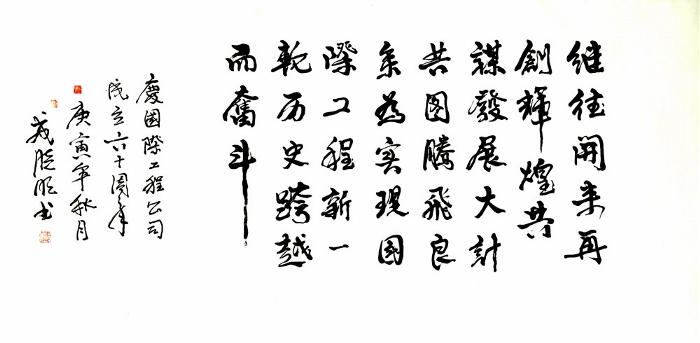 继往開来再
創輝煌共
謀發展大計
共图騰飛良
策为实現國
際工程新一
轮历史跨越
而奮斗
慶國際工程公司
成立六十周年
庚寅年秋月
书